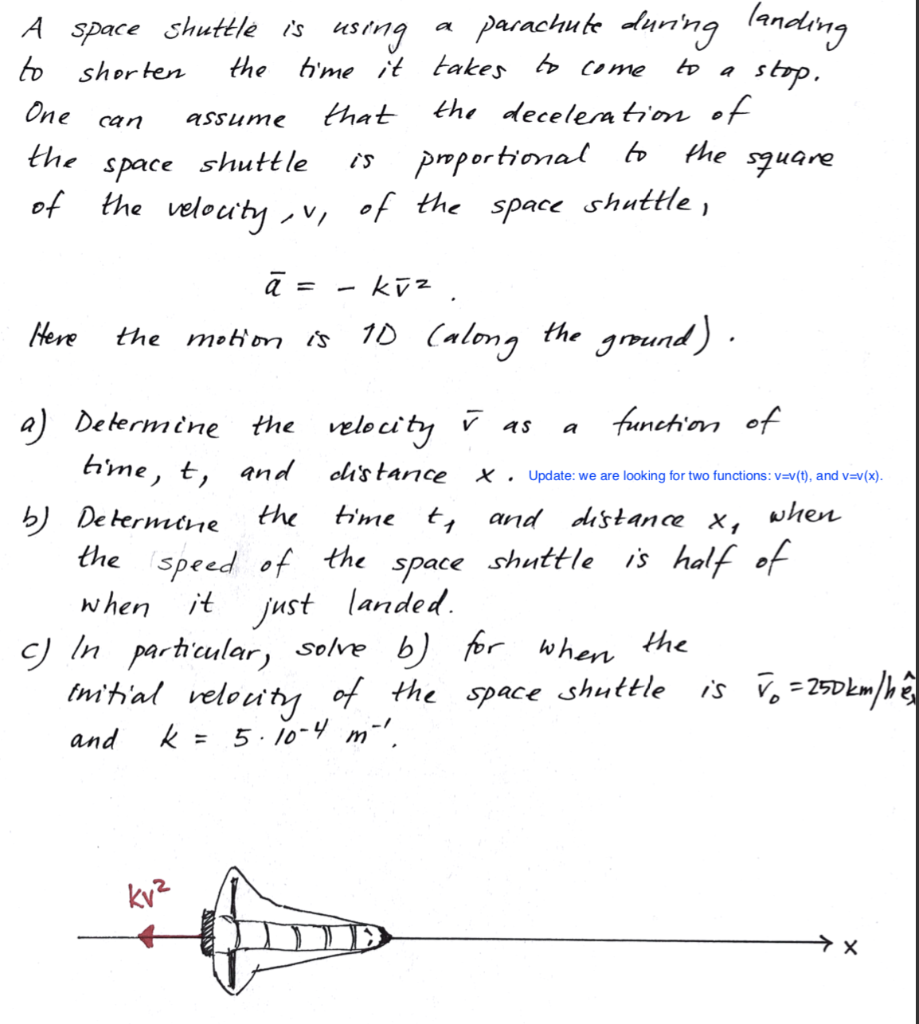 A space shuttle is using a parachute during landing
to shorten the time it takes to come to a stop.
One can assume that the deceleration of
the space shuttle is proportional to the square
of the velocity, v, of the space shuttle,
ā = - kv̄².
Here the motion is 1D (along the ground).
a) Determine the velocity v̄ as a function of
time, t, and distance x. Update: we are looking for two functions: v=v(t), and v=v(x).
b) Determine the time t₁ and distance x₁ when
the speed of the space shuttle is half of
when it just landed.
c) In particular, solve b) for when the
initial velocity of the space shuttle is v̄₀ = 250km/h êₓ
and k = 5·10⁻⁴ m⁻¹.
kv²
x